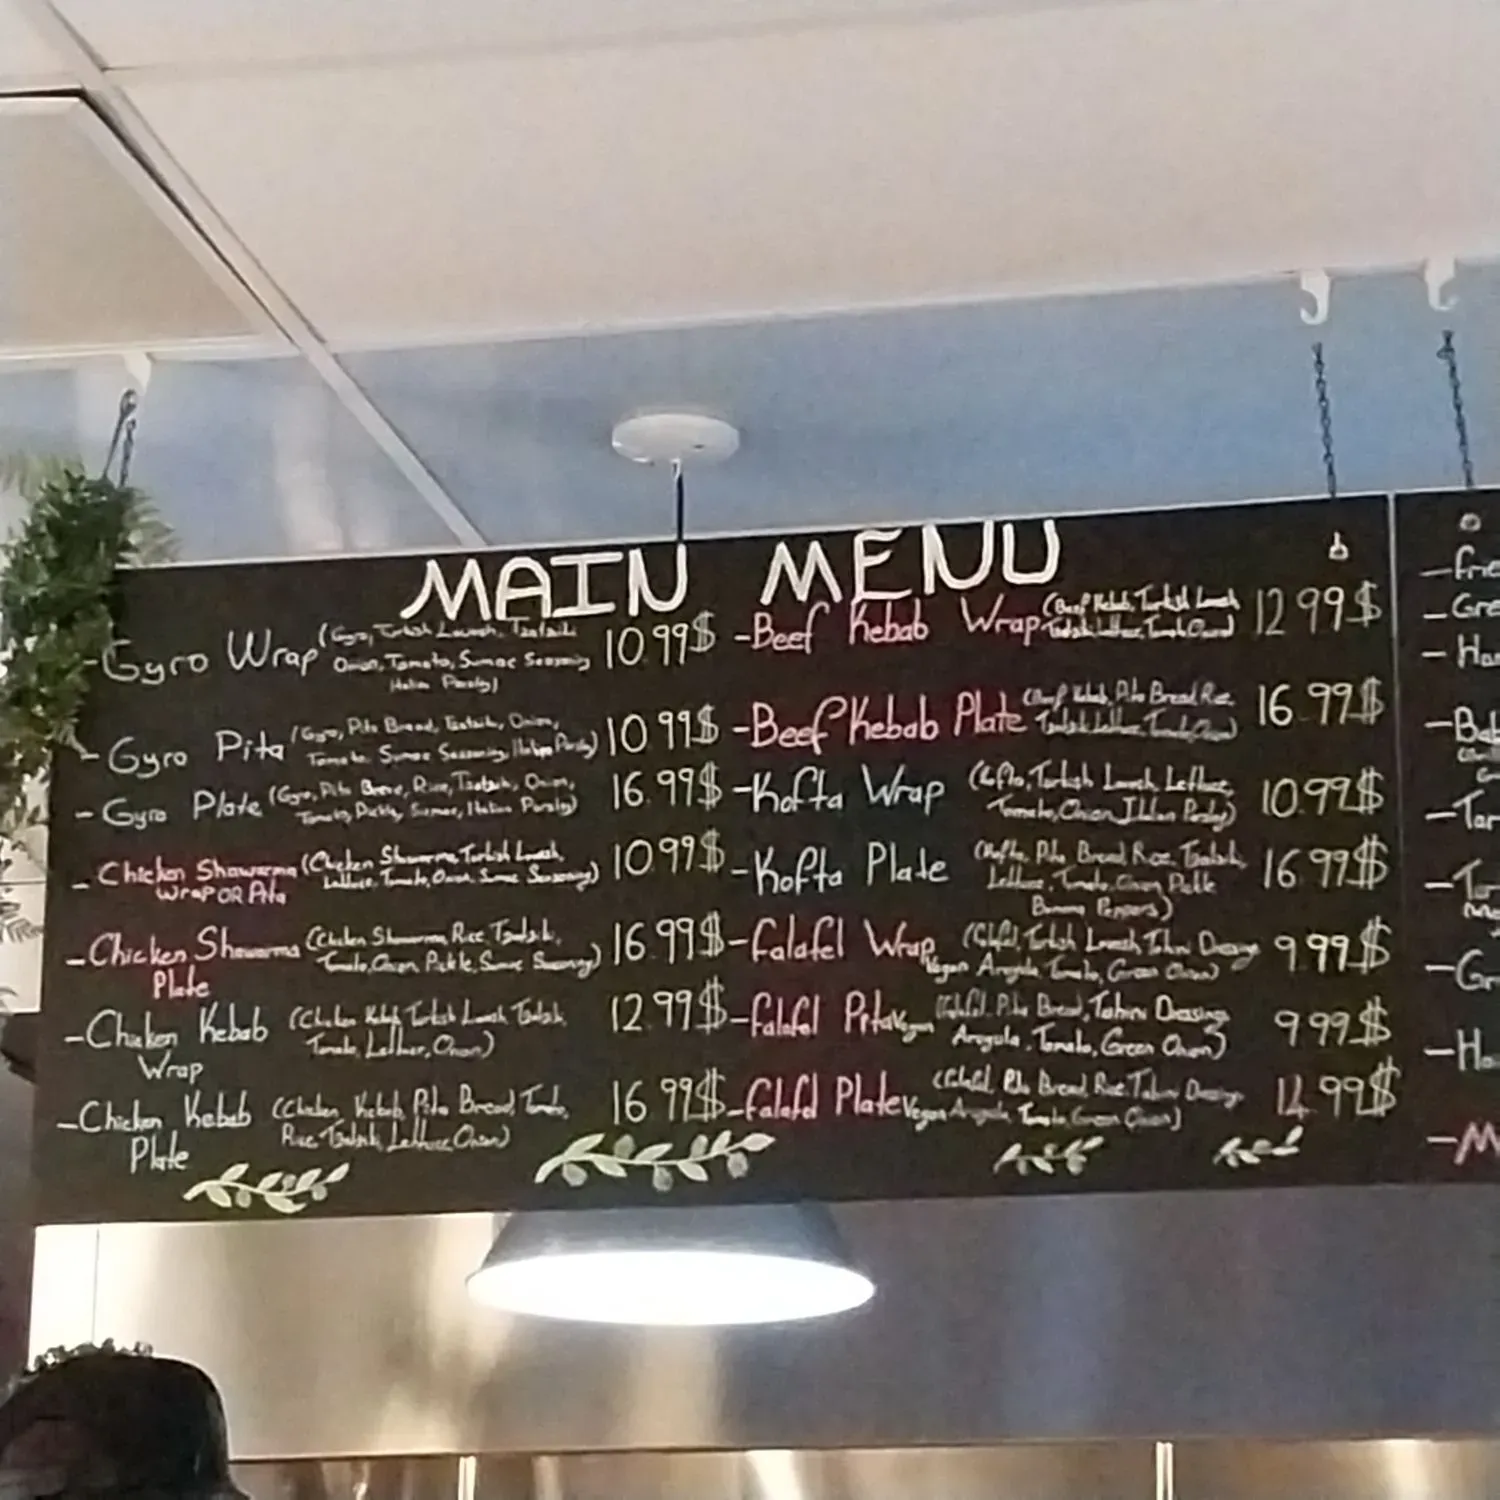 MAIN MENU
- Gyro Wrap (Gyro, Turkish Lavash, Tzatziki 10.99$
Onion, Tomato, Sumac Seasoning
Italian Parsley)
- Gyro Pita (Gyro, Pita Bread, Tzatziki, Onion, 10.99$
Tomato, Sumac Seasoning, Italian Parsley)
- Gyro Plate (Gyro, Pita Bread, Rice, Tzatziki, Onion, 16.99$
Tomato, Pickle, Sumac, Italian Parsley)
- Chicken Shawarma (Chicken Shawarma, Turkish Lavash, 10.99$
Wrap OR Pita Lettuce, Tomato, Onion, Sumac Seasoning)
- Chicken Shawarma (Chicken Shawarma, Rice, Tzatziki, 16.99$
Plate Tomato, Onion, Pickle, Sumac Seasoning)
- Chicken Kebab (Chicken Kebab, Turkish Lavash, Tzatziki, 12.99$
Wrap Tomato, Lettuce, Onion)
- Chicken Kebab (Chicken Kebab, Pita Bread, Tomato, 16.99$
Plate Rice, Tzatziki, Lettuce, Onion)
- Beef Kebab Wrap (Beef Kebab, Turkish Lavash 12.99$
Tzatziki, Lettuce, Tomato, Onion)
- Beef Kebab Plate (Beef Kebab, Pita Bread, Rice, 16.99$
Tzatziki, Lettuce, Tomato, Onion)
- Kofta Wrap (Kofta, Turkish Lavash, Lettuce, 10.99$
Tomato, Onion, Italian Parsley)
- Kofta Plate (Kofta, Pita Bread, Rice, Tzatziki, 16.99$
Lettuce, Tomato, Onion, Pickle
Banana Peppers)
- Falafel Wrap (Falafel, Turkish Lavash, Tahini Dressing 9.99$
Vegan Arugula, Tomato, Green Onion)
- Falafel Pita Vegan (Falafel, Pita Bread, Tahini Dressing, 9.99$
Arugula, Tomato, Green Onion)
- Falafel Plate Vegan (Falafel, Pita Bread, Rice, Tahini Dressing, 14.99$
Arugula, Tomato, Green Onion)
- Frie
- Gre
- Ha
- Ba
- Tar
- Gr
- Ha
- M